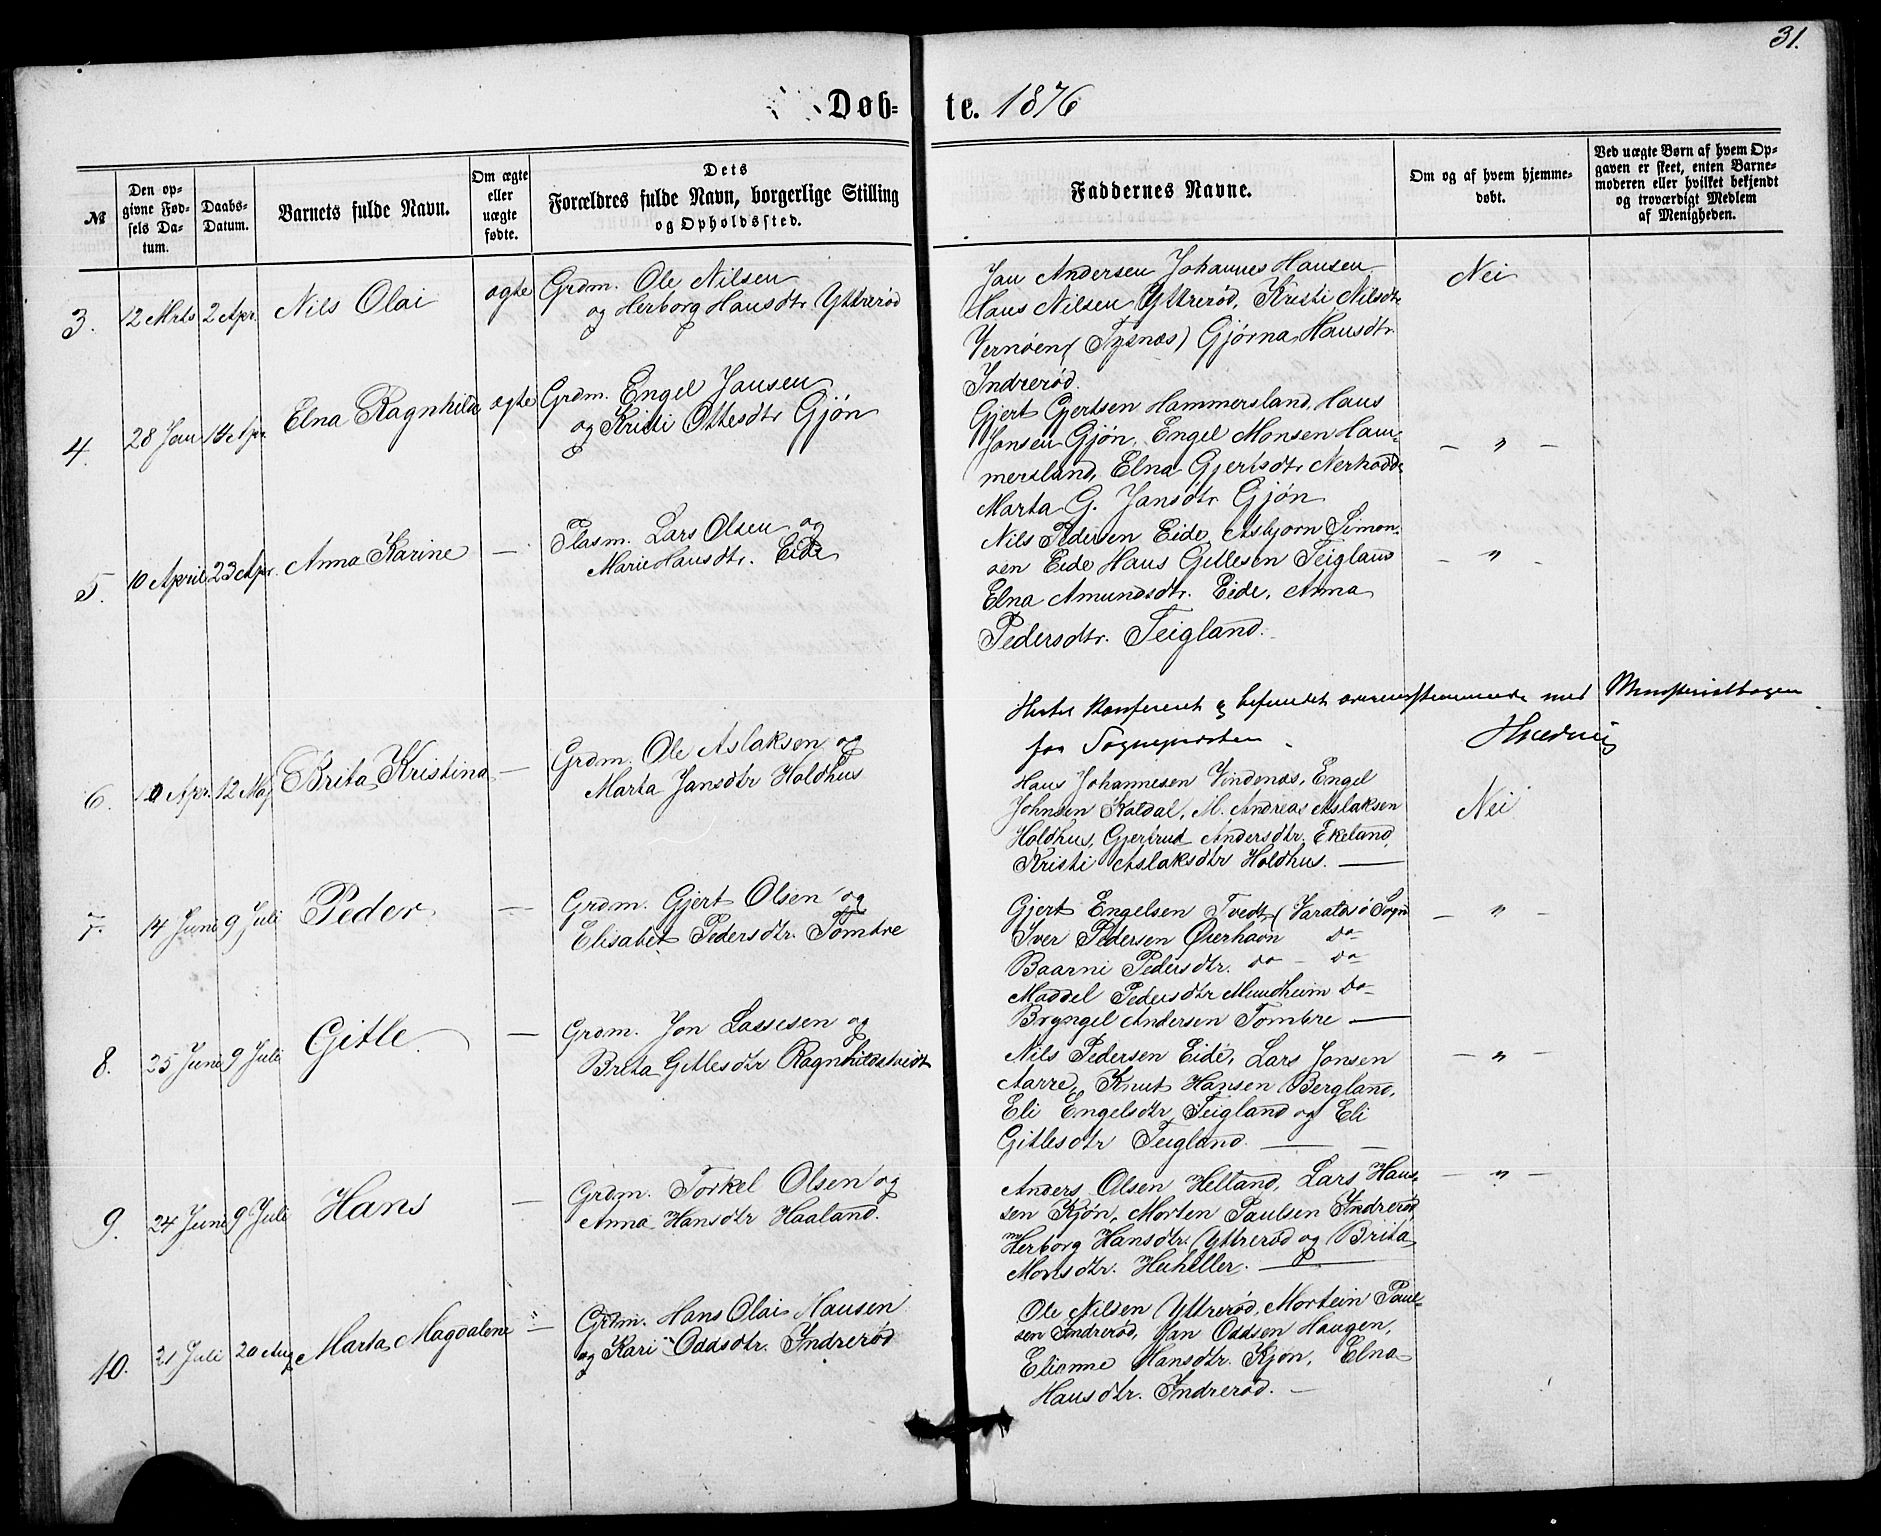 31.
Døb- te. 1876
№
Den op-
givne Fød-
sels Da-
tum.
Daabs-
Datum.
Barnets fulde Navn.
Om ægte
eller
uægte
fødte.
Dets
Forældres fulde Navn, borgerlige Stilling
og Opholdssted.
Faddernes Navne.
Om og af hvem hjemme-
døbt.
Ved uægte Børn af hvem Op-
gaven er skeet, enten Barne-
moderen eller hvilket bekjendt
og troværdigt Medlem
af Menigheden.
3. 12 Mrts 2 Apr. Nils Olai ægte
Grdm. Ole Nilsen
og Herborg Hansdtr Yttrerød
Jan Andersen Johannes Hansen
Hans Nilsen Yttrerød, Kristi Nilsdtr
Vernøen (Tysnæs) Gjørna Hansdtr
Indrerød.
Nei
4. 28 Jan Apr. Elna Ragnhild ægte
Grdm. Engel Jansen
og Kristi Ottesdtr Gjøn
Gjert Gjertsen Hammersland, Hans
Jansen Gjøn, Engel Monsen Ham-
mersland, Elna Gjertsdtr
Marta G. Jansdtr Gjøn
— " —
5. 10 April 23 Apr. Anna Karine —
Plasm. Lars Olsen og
Marie Hansdtr. Eide
Nils Pedersen Eide, Asbjørn Simon-
sen Eide Hans Gitlesen Teigland
Elna Amundsdtr. Eide, Anna
Pedersdtr. Teigland.
— " —
Hertil konfereret og befundet overensstemmende med Ministerialbogen
for Sognepresten
6. 10 Apr. 12 Maj Brita Kristina —
Grdm. Ole Aslaksen og
Marta Jansdtr Holdhus
Hans Johannesen Vindenæs, Engel
Johnsen Kaldal, M. Andreas Aslaksen
Holdhus, Gjertrud Andersdtr. Ekeland,
Kristi Aslaksdtr Holdhus. —
Nei
7. 14 Juni 9 Juli Peder —
Grdm. Gjert Olsen og
Elisabet Pedersdtr. Tombre
Gjert Engelsen Tvedt (Varaldsø Sogn
Iver Pedersen Østerhavn do
Baarni Pedersdtr. do - do
Maddel Pedersdtr Mundheim do
Bryngel Andersen Tombre —
— " —
8. 25 Juni 9 Juli Gitle —
Grdm. Jon Lassesen og
Brita Gitlesdtr Ragnhildstveidt
Nils Pedersen Eide, Lars Jonsen
Aarre, Knut Hansen Bergland,
Eli Engelsdtr Teigland og Eli
Gitlesdtr Teigland. — —
— " —
9. 24 Juni 9 Juli Hans —
Grdm. Torkel Olsen og
Anna Hansdtr Haaland.
Anders Olsen Helland, Lars Han-
sen Kjøn, Morten Paulsen Indrerød
Herborg Hansdtr. Yttrerød og Brita
Monsdtr. Helheller. —
— " —
10. 21 Juli 20 Aug. Marta Magdalene —
Grdm. Hans Olai Hansen
og Kari Oddsdtr. Indrerød
Ole Nilsen Yttrerød, Mortein Paul-
sen Indrerød, Jan Oddsen Haugen,
Elianne Hansdtr. Kjøn, Elna
Hansdtr. Indrerød. —